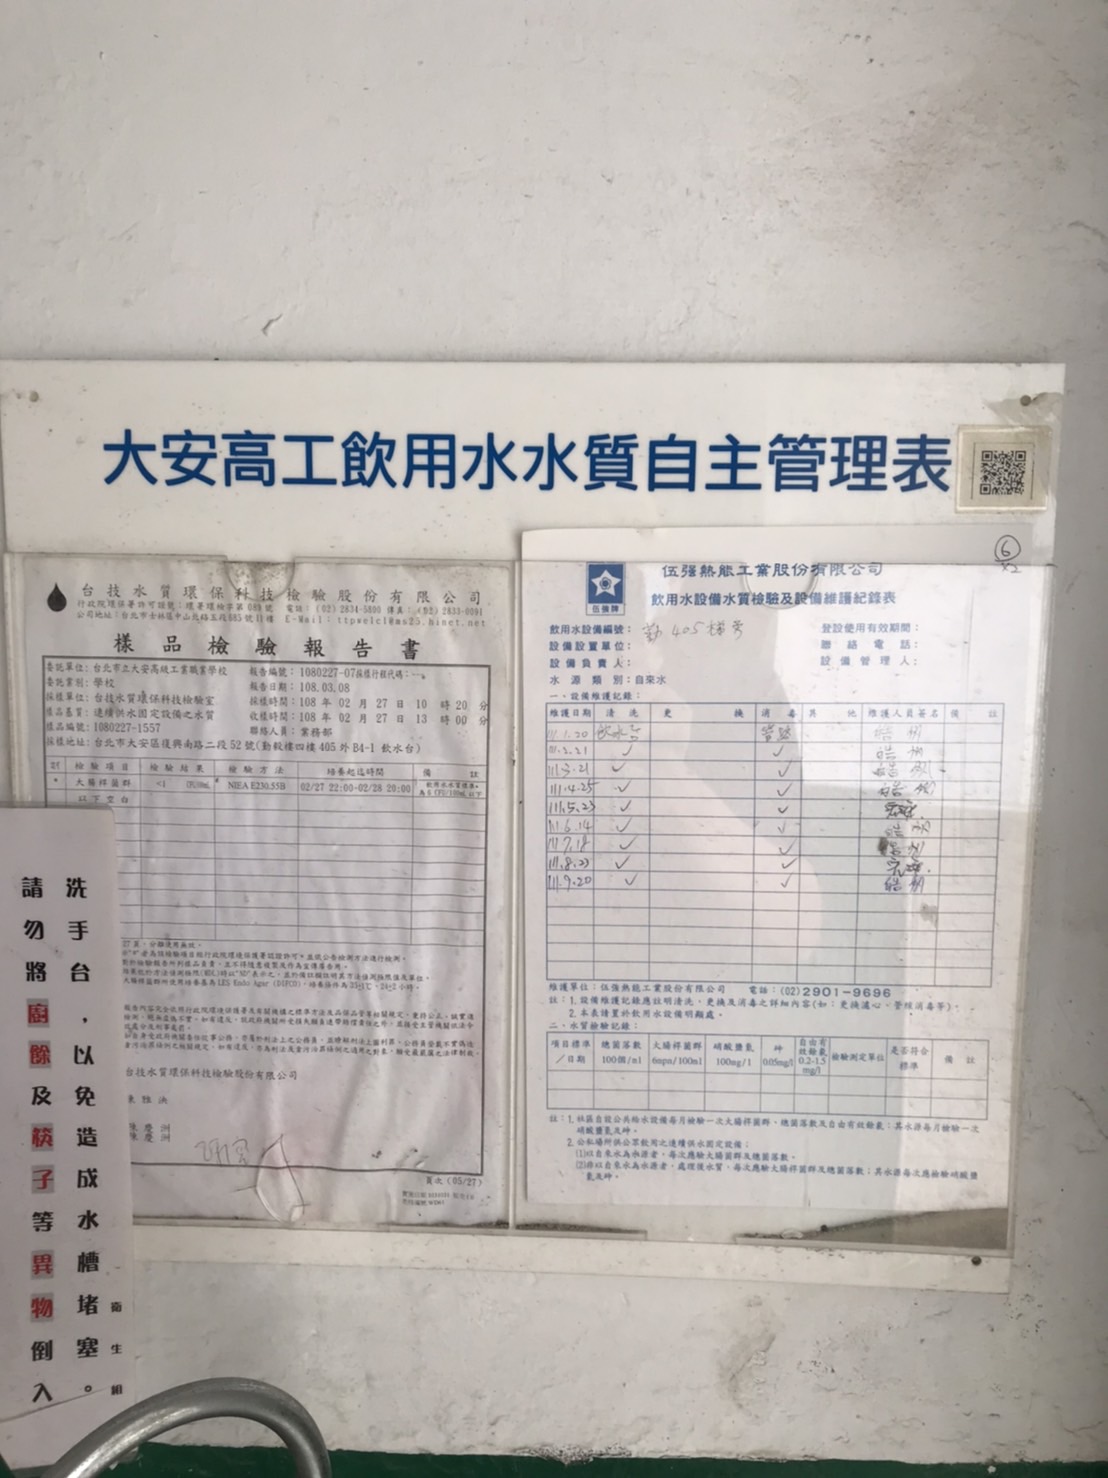 大安高工飲用水水質自主管理表
台技水質環保科技檢驗股份有限公司
行政院環保署許可證號：環署環檢字第089號 電話：(02)2834-5899 傳真：(02)2833-0091
公司地址：台北市士林區中山北路五段685號11樓 E-Mail：ttpwelcl@ms25.hinet.net
樣品檢驗報告書
委託單位：台北市立大安高級工業職業學校 報告編號：1080227-07 採樣行程代碼：--
委託業別：學校 報告日期：108.03.08
採樣單位：台技水質環保科技檢驗室 採樣時間：108 年 02 月 27 日 10 時 20 分
樣品基質：連續供水固定設備之水質 收樣時間：108 年 02 月 27 日 13 時 00 分
樣品編號：1080227-1557 聯絡人員：業務部
採樣地址：台北市大安區復興南路二段52號(勤毅樓四樓405外B4-1飲水台)
註 檢驗項目 檢驗結果 檢驗方法 培養起迄時間 備註
* 大腸桿菌群 <1 CFU/100mL * NIEA E230.55B 02/27 22:00-02/28 20:00 飲用水水質標準：為6 CFU/100mL以下
以下空白
台技水質環保科技檢驗股份有限公司
陳慶洲
陳慶洲
頁次(05/27)
6
伍強牌
伍強熱能工業股份有限公司
飲用水設備水質檢驗及設備維護紀錄表
飲用水設備編號：勤405梯旁 登設使用有效期間：
設備設置單位： 聯絡電話：
設備負責人： 設備管理人：
水源類別：自來水
一、設備維護記錄：
維護日期 清洗 更換 消毒 其他 維護人員簽名 備註
111.1.20 飲水台 管路
111.2.21 ✓ ✓
111.3.21 ✓ ✓
111.4.25 ✓ ✓
111.5.23 ✓ ✓
111.6.14 ✓ ✓
111.7.18 ✓ ✓
111.8.23 ✓ ✓
111.9.20 ✓ ✓
維護單位：伍強熱能工業股份有限公司 電話：(02)2901-9696
註：1.設備維護記錄應註明清洗、更換及消毒之詳細內容(如：更換濾心、管線消毒等)。
2.本表請置於飲用水設備明顯處。
二、水質檢驗記錄：
項目標準/日期 總菌落數100個/ml 大腸桿菌群6mpn/100ml 硝酸鹽氮100mg/l 砷0.05mg/l 自由有效餘氯0.2-1.5mg/l 檢驗測定單位 是否符合標準 備註
註：1.社區自設公共給水設備每月檢驗一次大腸桿菌群、總菌落數及自由有效餘氯；其水源每月檢驗一次
硝酸鹽氮及砷。
2.公私場所供公眾飲用之連續供水固定設備：
(1)以自來水為水源者，每次應驗大腸菌群及總菌落數。
(2)非以自來水為水源者，處理後水質，每次應驗大腸桿菌群及總菌落數；其水源每次應檢驗硝酸鹽
氮及砷。
洗手台，以免造成水槽堵塞。
請勿將廚餘及筷子等異物倒入
衛生組